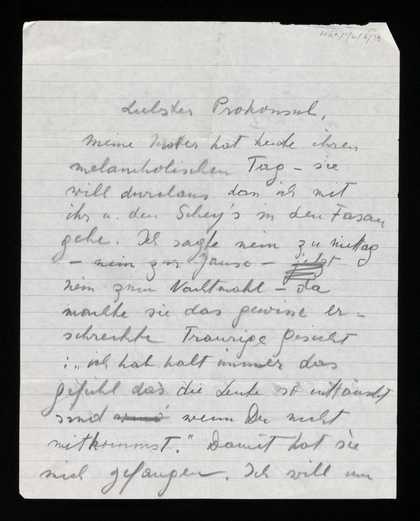 Liebster Prokonsul,
Meine Mutter hat heute ihren
melancholischen Tag – sie
will durchaus das ich mit
ihr u. den Schey's in den Fasan
gehe. Ich sagte nein zu mittag
– nein zur Jause – jetzt
nein zum Nachtmahl – da
machte sie das gewisse er-
schreckte Traurige Gesicht
: „ich hab halt immer das
gefühl das die Leute so enttäuscht
sind wenn Du nicht
mitkommst." Damit hat sie
mich gefangen. Ich will um